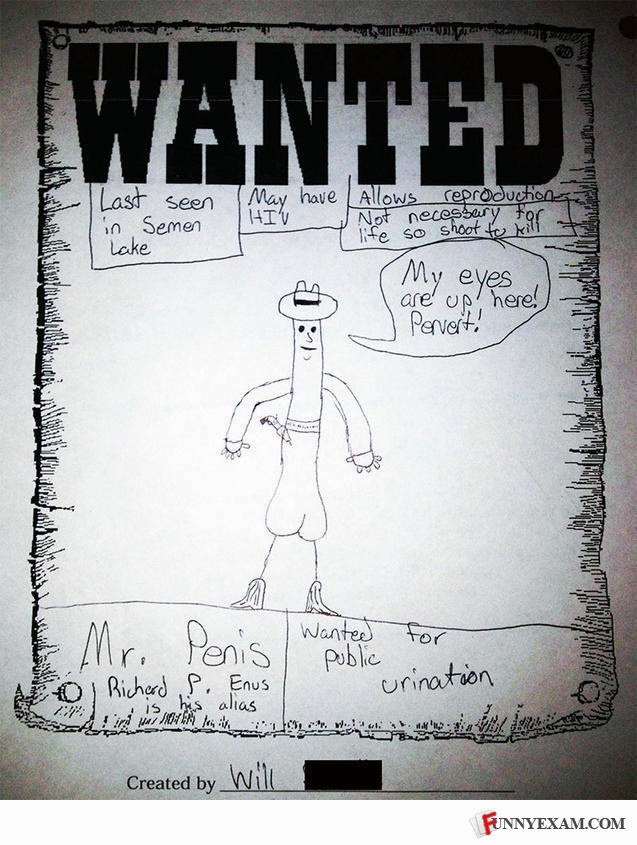 WANTED
Last seen
in Semen
Lake
May have
HIV
Allows reproduction
Not necessary for
life so shoot to kill
My eyes
are up here!
Pervert!
Mr. Penis
Richard P. Enus
is his alias
Wanted for
public
urination
Created by Will
FUNNYEXAM.COM